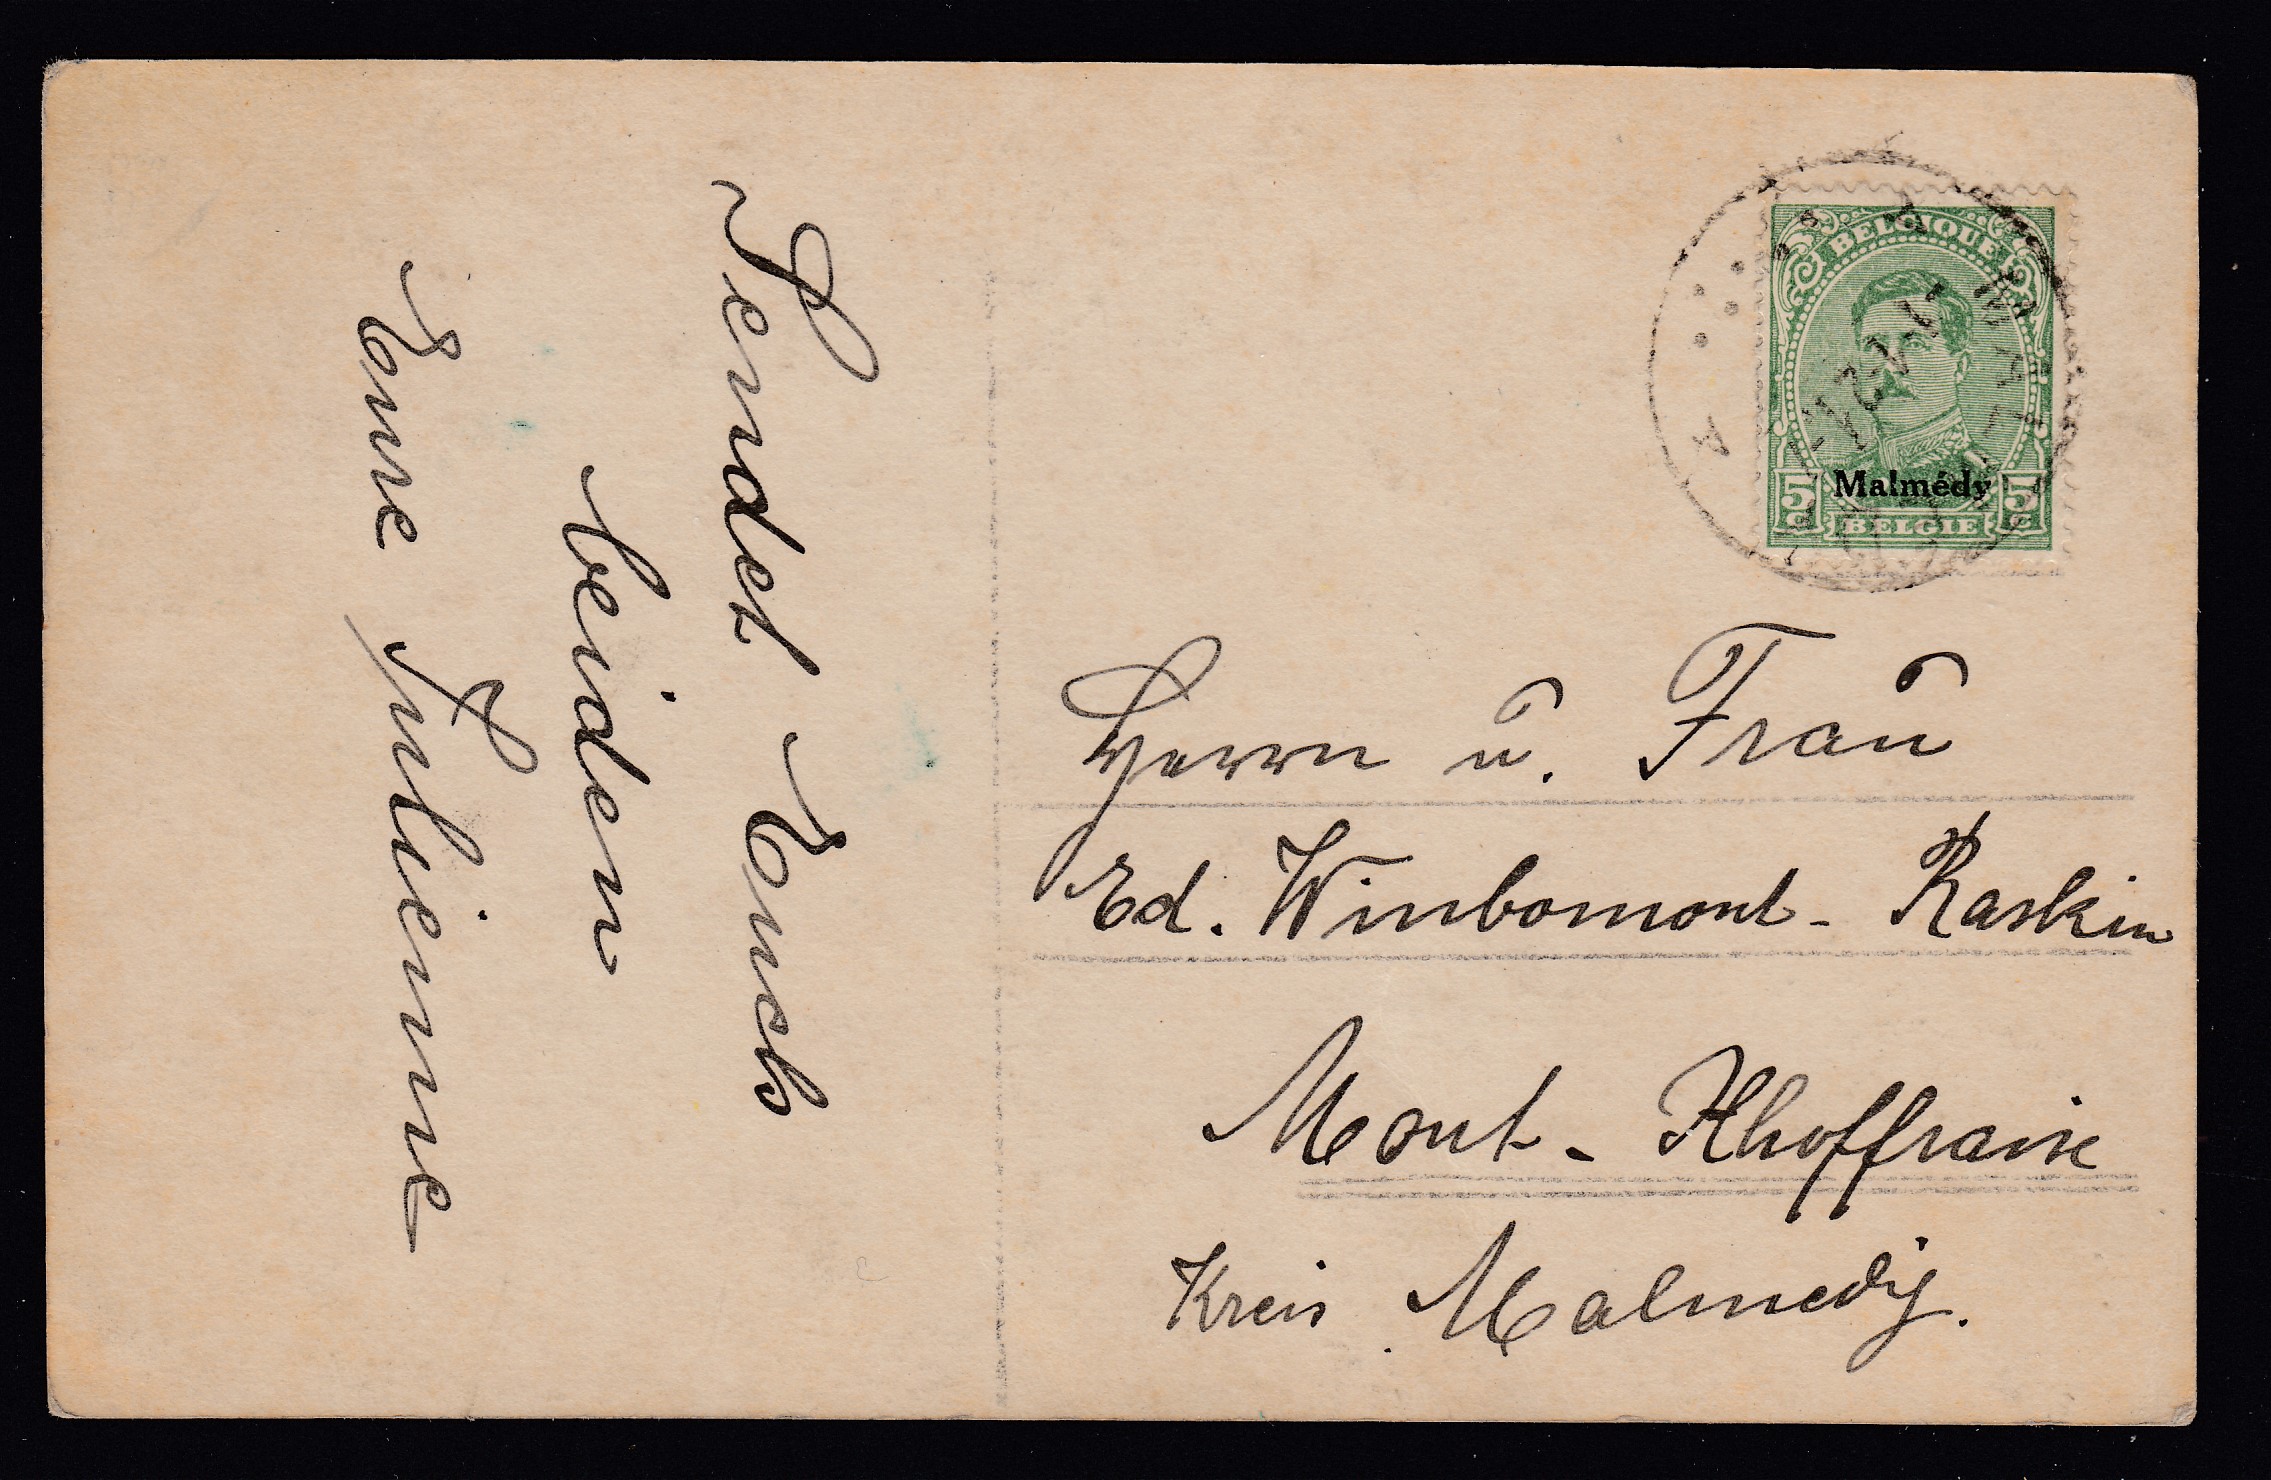 Sendet Euch
beiden
Eure Julienne
BELGIQUE
Malmédy
5c 5c
BELGIE
Herrn u. Frau
Ed. Wimbomont - Raskin
Mont - Xhoffraix
Kreis Malmedy.